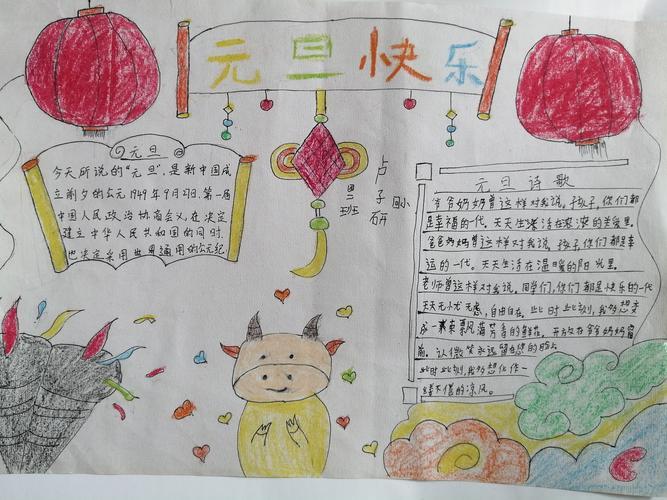 元旦快乐
元旦
今天所说的"元旦",是新中国成
立前夕的公元1949年9月27日,第一届
中国人民政治协商会议,在决定
建立中华人民共和国的同时,
也决定采用世界通用的公元纪
卢子研
班
元旦诗歌
爷爷奶奶曾这样对我说,孩子,你们都
是幸福的一代,天天生活在滚滚的关爱里。
爸爸妈妈曾这样对我说,孩子你们都是幸
运的一代。天天生活在温暖的阳光里。
老师曾这样对我说,同学们,你们都是快乐的一代
天天无小忧无虑,自由自在,此时此刻,我多想变
成一束飘满芳香的鲜花,开放在爷爷奶奶窗
前,让微笑永远留在您的
此时此刻,我多想化作一
缕不倦的凉风。